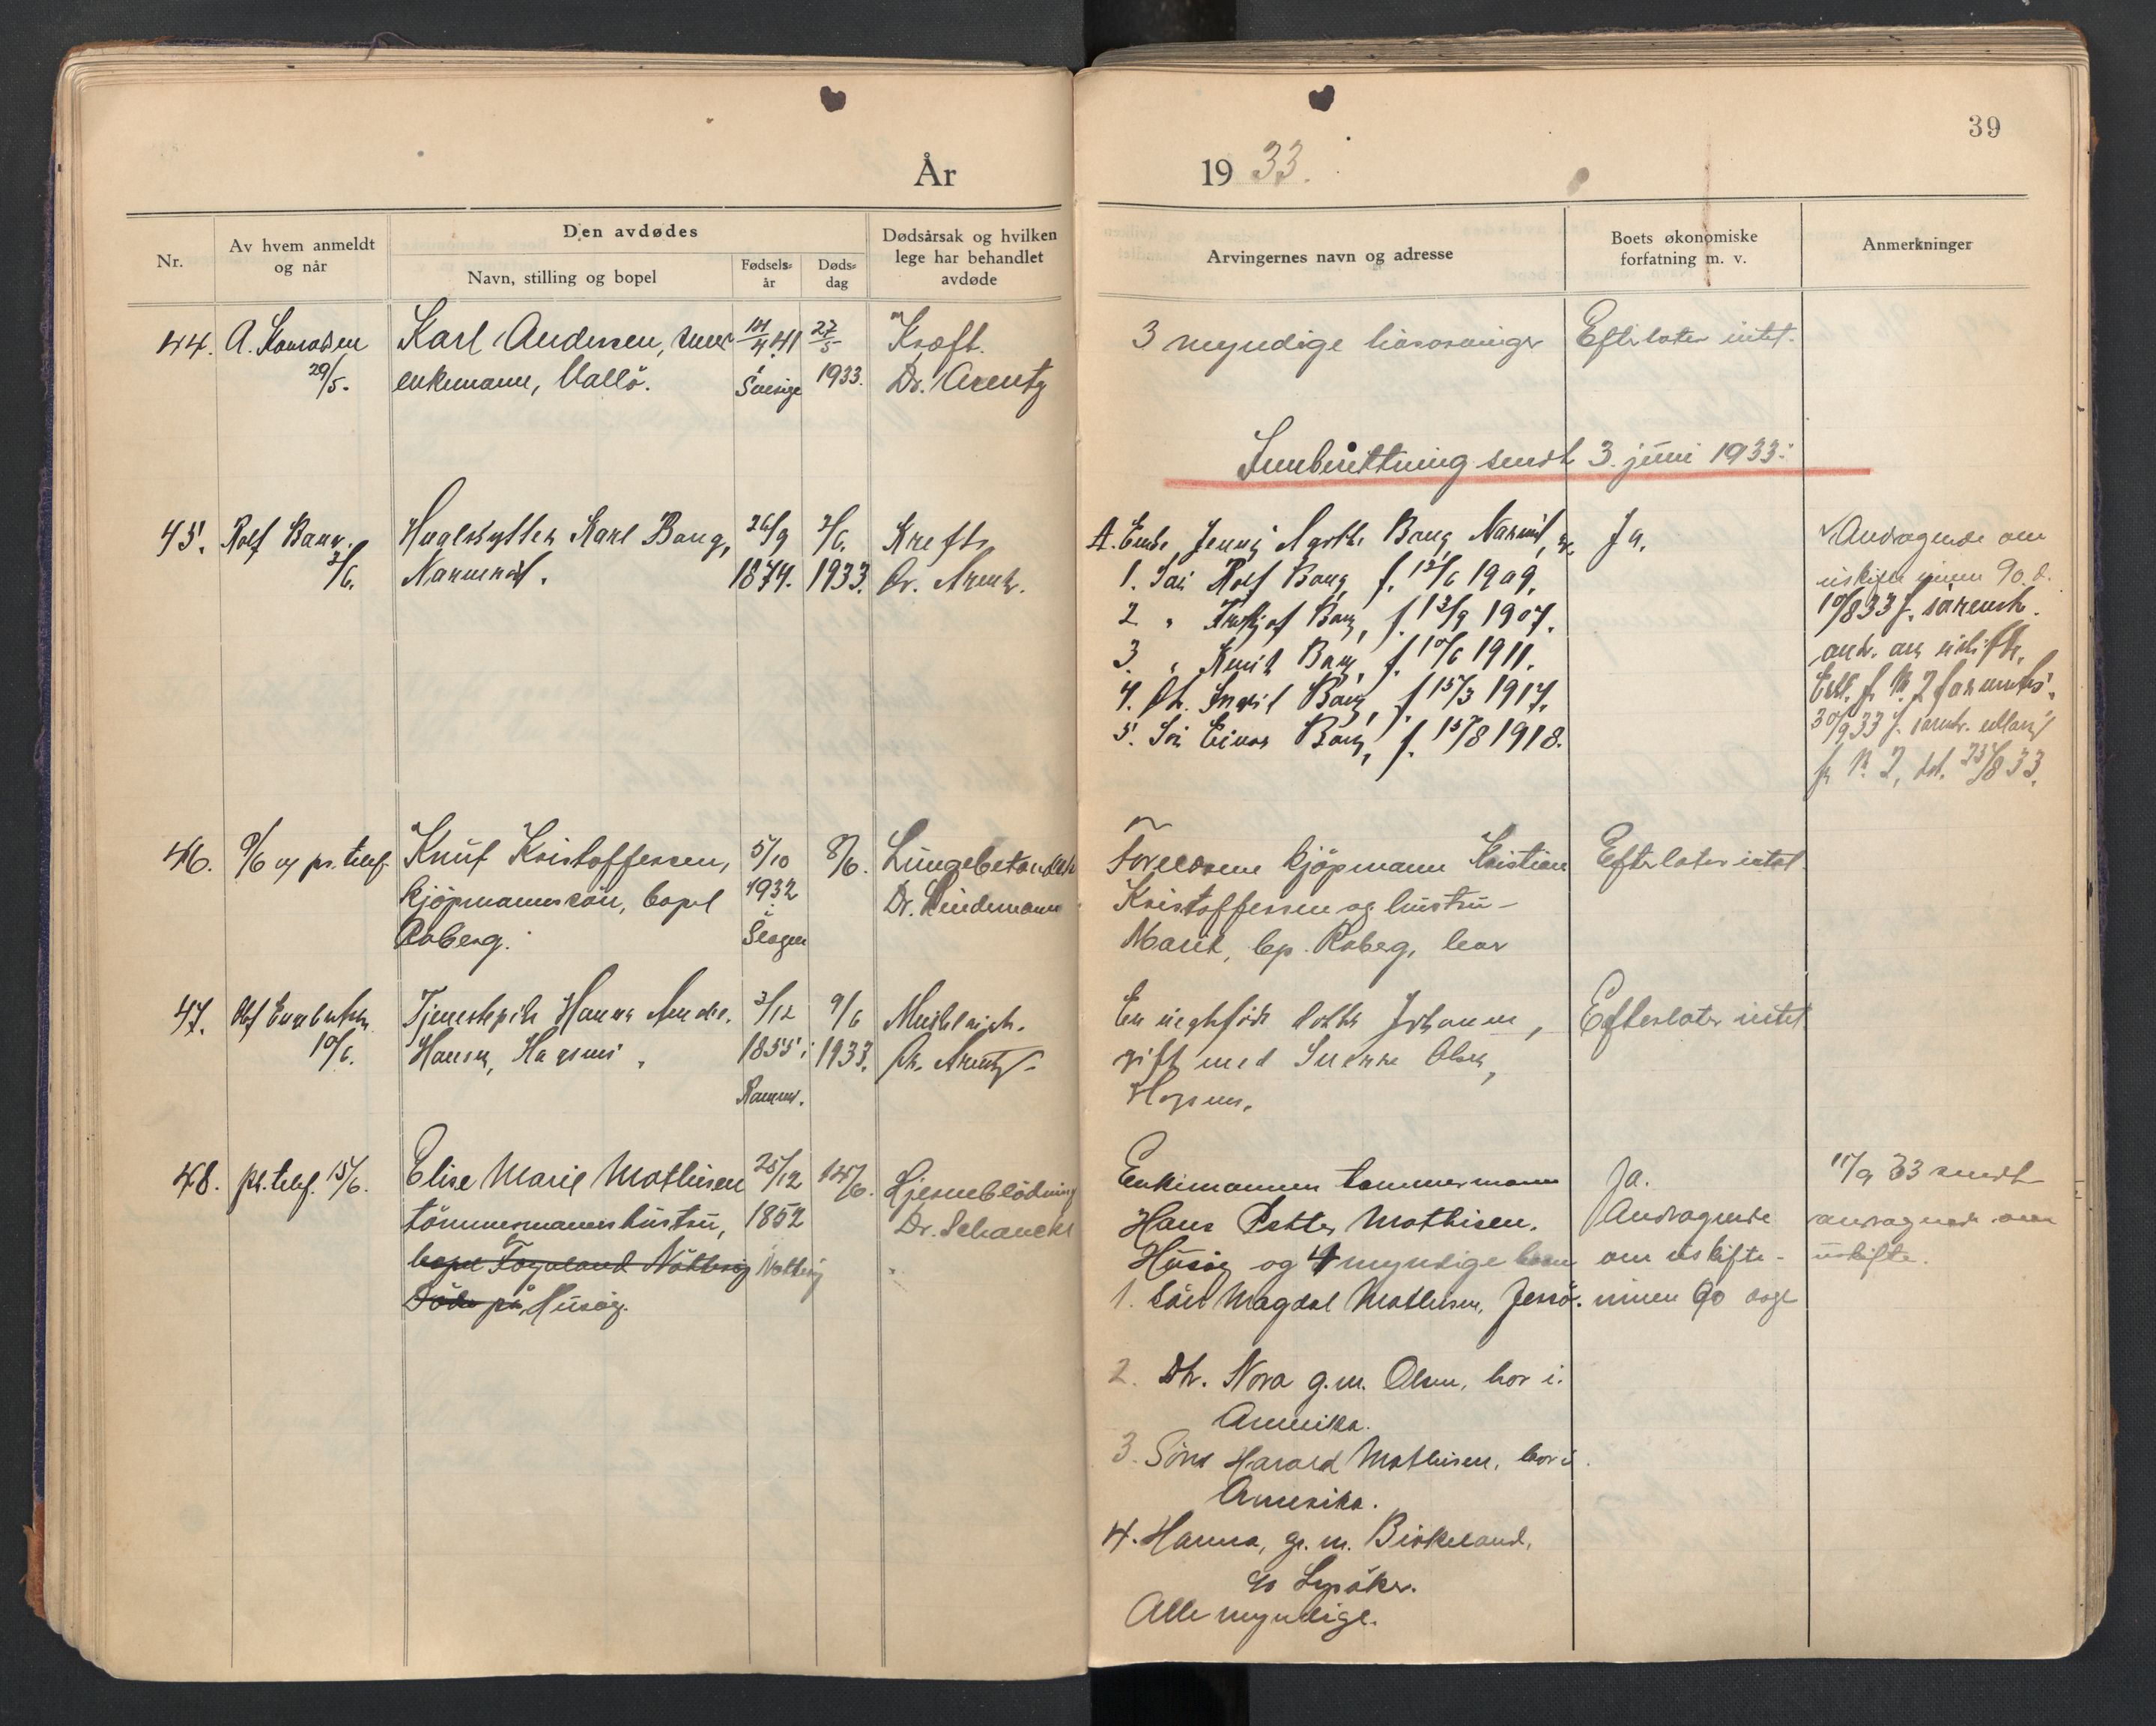 39
År
19 33.
Nr.
Av hvem anmeldt
og når
Den avdødes
Navn, stilling og bopel
Fødsels-
år
Døds-
dag
Dødsårsak og hvilken
lege har behandlet
avdøde
Arvingernes navn og adresse
Boets økonomiske
forfatning m. v.
Anmerkninger
44.
29/5.
Karl Andersen,
enkemann, Vallö.
41
Sverige
27/5
1933.
Kræft.
Dr. Arentz
3 myndige livsarvinger
Efterlater intet.
Innberettning sendt 3. juni 1933.
45.
Rolf Bang
2/6.
Hvalskytter Karl Bang,
26/9
1874.
2/6.
1933.
Kreft,
Dr. Arentz.
A. Enke Jenny Marthe Bang,
1. Søn Rolf Bang, f. 12/6 1909.
2 " Bang, f. 13/9 1907.
3. " Bang, f. 10/6 1911.
4. Dt. Bang, f 15/3 1917.
5. Søn Einar Bang, f. 15/8 1918.
Ja.
Andragende om
uskifte innen 90 d.
10/8 33 f.
andr. om uskifte.
30/9 33 f.
23/8 33.
46.
9/6 pr. telef.
Knut Kristoffersen,
kjöpmannssön, bopel
Råberg.
5/10
1932
8/6.
Lungebetendelse
Dr. Lindemann
Foreldrene kjöpmann Kristian
Kristoffersen og hustru
Marit, bp. Råberg, har
Efterlater intet.
47.
Olof
10/6.
Tjenestepike Hanna
Hansen,
3/12
1855.
Ramnes.
9/6
1933.
Dr. Arentz
En uegtefödt dotter Johanne,
gift med Sverre Olsen,
Efterlater intet
48.
pr. telef. 15/6.
Elise Marie Mathisen
tömmermannshustru,
bopel Föynland Nötteröy
Döde på Husöy.
25/12
1852
Nötteröy
14/6.
Hjerneblödning
Dr. Schancke
Enkemannen tömmermann
Hans Petter Mathisen,
Husöy og 4 myndige barn
1. Sön Magdal Mathisen, Jersö.
2. Dtr. Nora g.m. Olsen, bor i
Amerika.
3. Sönn Harald Mathisen, bor i
Amerika.
4. Hanna, g. m. Birkeland,
Lysaker.
Alle myndige.
Ja.
Andragende
om uskifte
innen 90 dage
11/9 33 sendt
andragende om
uskifte.